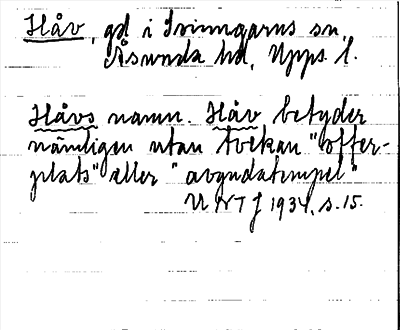 Håv, gd i Svinngarns sn,
Åsunda hd, Upps. l.
Håvs namn. Håv betyder
nämligen utan tvekan "offer-
plats" eller "avgudatempel"
UNTJ 1934, s. 15.